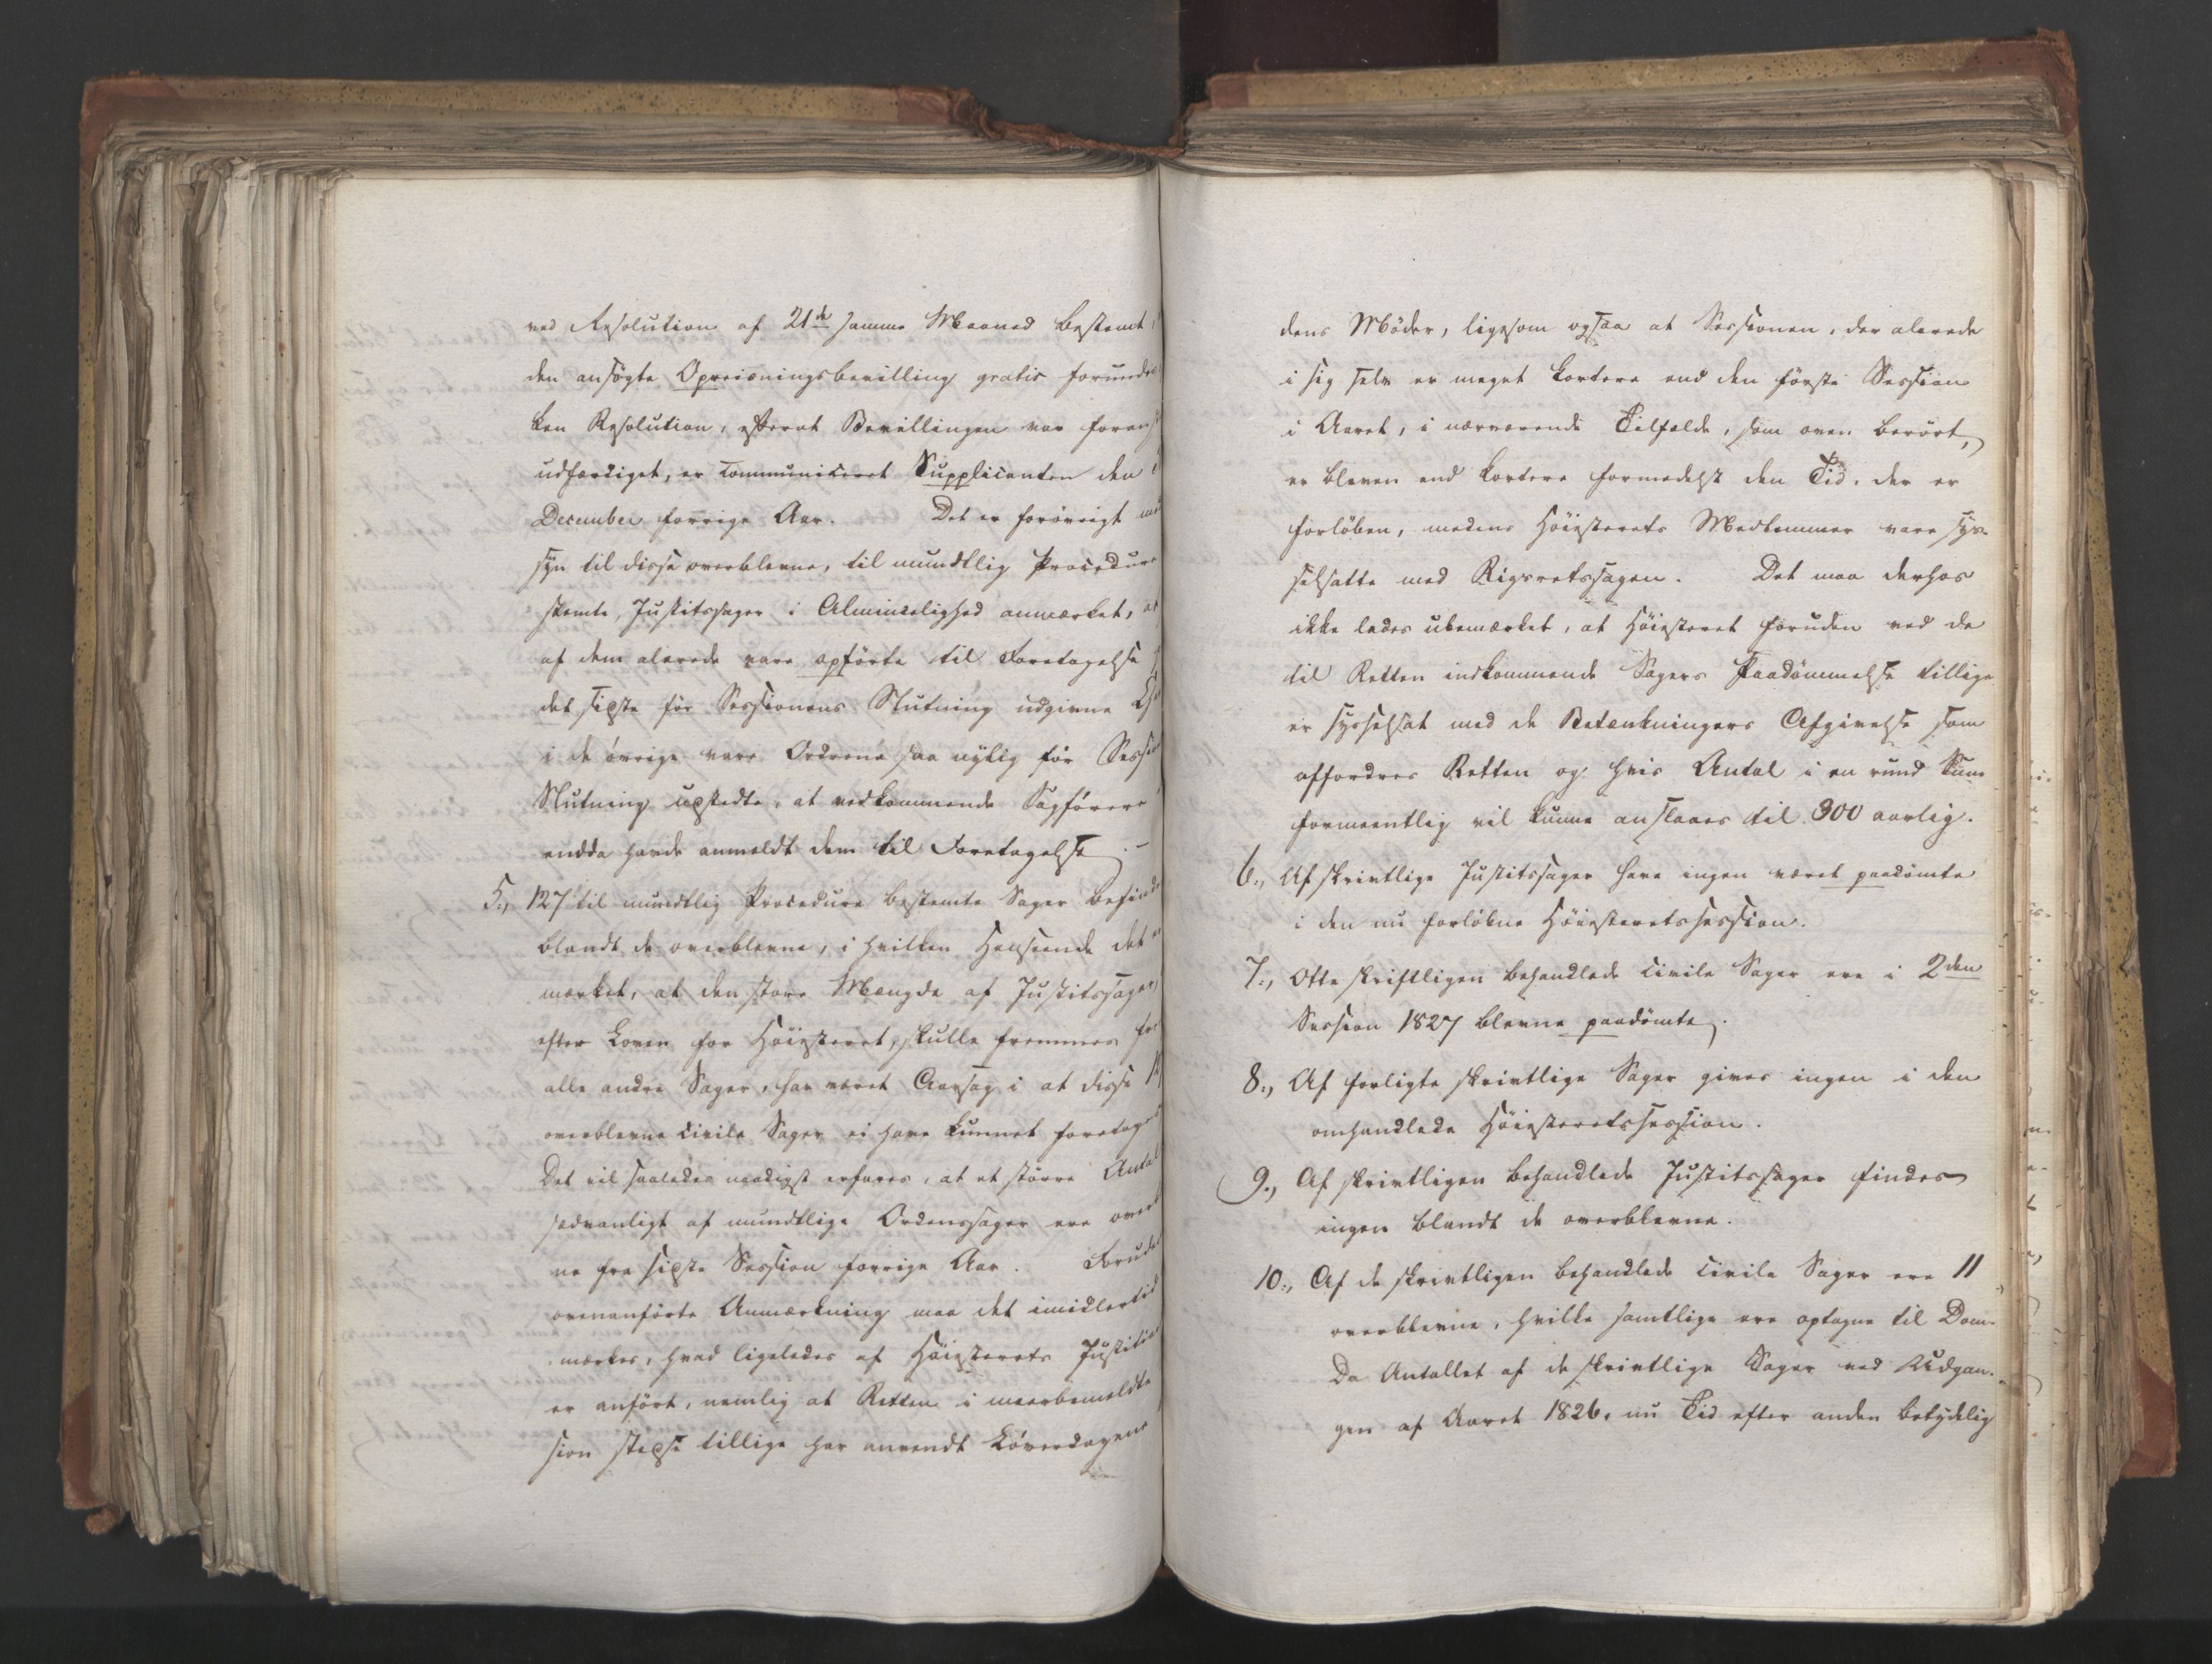 ved Resolution af 21de samme Maaned bestemt,
den ansøgte Opreisningsbevilling gratis forundes
ken Resolution, efterat Bevillingen var foran
udfærdiget, er communiceret Supplicanten den
December forrige Aar. Det er forøvrigt
syn til disse overblevne, til mundtlig Procedure
stemte, Justitssager i Almindelighed anmærket, at
af dem alerede vare opførte til Foretagelse
det sidste før Sessionens Slutning udgivne
i de øvrige vare Ordrene saa nylig før Sessi
Slutning udstedte, at vedkommende Sagførere
endda havde anmeldt dem til Foretagelse. –
5., 127 til mundtlig Procedure bestemte Sager befinde
blandt de overblevne, i hvilken Henseende det
mærket, at den store Mængde af Justitssager,
efter Loven for Høiesteret skulle fremmes
alle andre Sager, har været Aarsag i at disse
overblevne civile Sager ei have kunnet foretages
Det vil saaledes naadigst erfares, at et større Antal
sædvanligt af mundtlige Ordenssager ere overb
ne fra sidste Session forrige Aar. Foruden
ovenanførte Anmærkning maa det imidlertid
mærkes, hvad ligeledes af Høiesterets Justitia
er anført, nemlig at Retten i meerbemeldte
sion stedse tillige har anvendt Løverdagene
dens Møder, ligesom ogsaa at Sessionen, der alerede
i sig selv er meget kortere end den første Session
i Aaret, i nærværende Tilfælde, som oven berørt,
er bleven end kortere formedelst den Tid, der er
forløben, medens Høiesterets Medlemmer vare sys-
selsatte med Rigsretssagen. Det maa derhos
ikke lades ubemærket, at Høiesteret foruden ved de
til Retten indkommende Sagers Paadømmelse tillige
er sysselsat med de Betænkningers Afgivelse som
affordres Retten og hvis Antal i en rund Sum
formeentlig vil kunne anslaaes til 300 aarlig.
6., Af skrivtlige Justitssager have ingen været paadømte
i den nu forløbne Høiesteretssession.
7., Otte skriftligen behandlede civile Sager ere i 2den
Session 1827 blevne paadømte.
8., Af forligte skrivtlige Sager gives ingen i den
omhandlede Høiesteretssession.
9., Af skrivtligen behandlede Justitssager findes
ingen blandt de overblevne.
10., Af de skrivtligen behandlede civile Sager ere 11
overblevne, hvilke samtlige ere optagne til Dom.
Da Antallet af de skrivtlige Sager ved Udgan-
gen af Aaret 1826, nu Tid efter anden betydelig